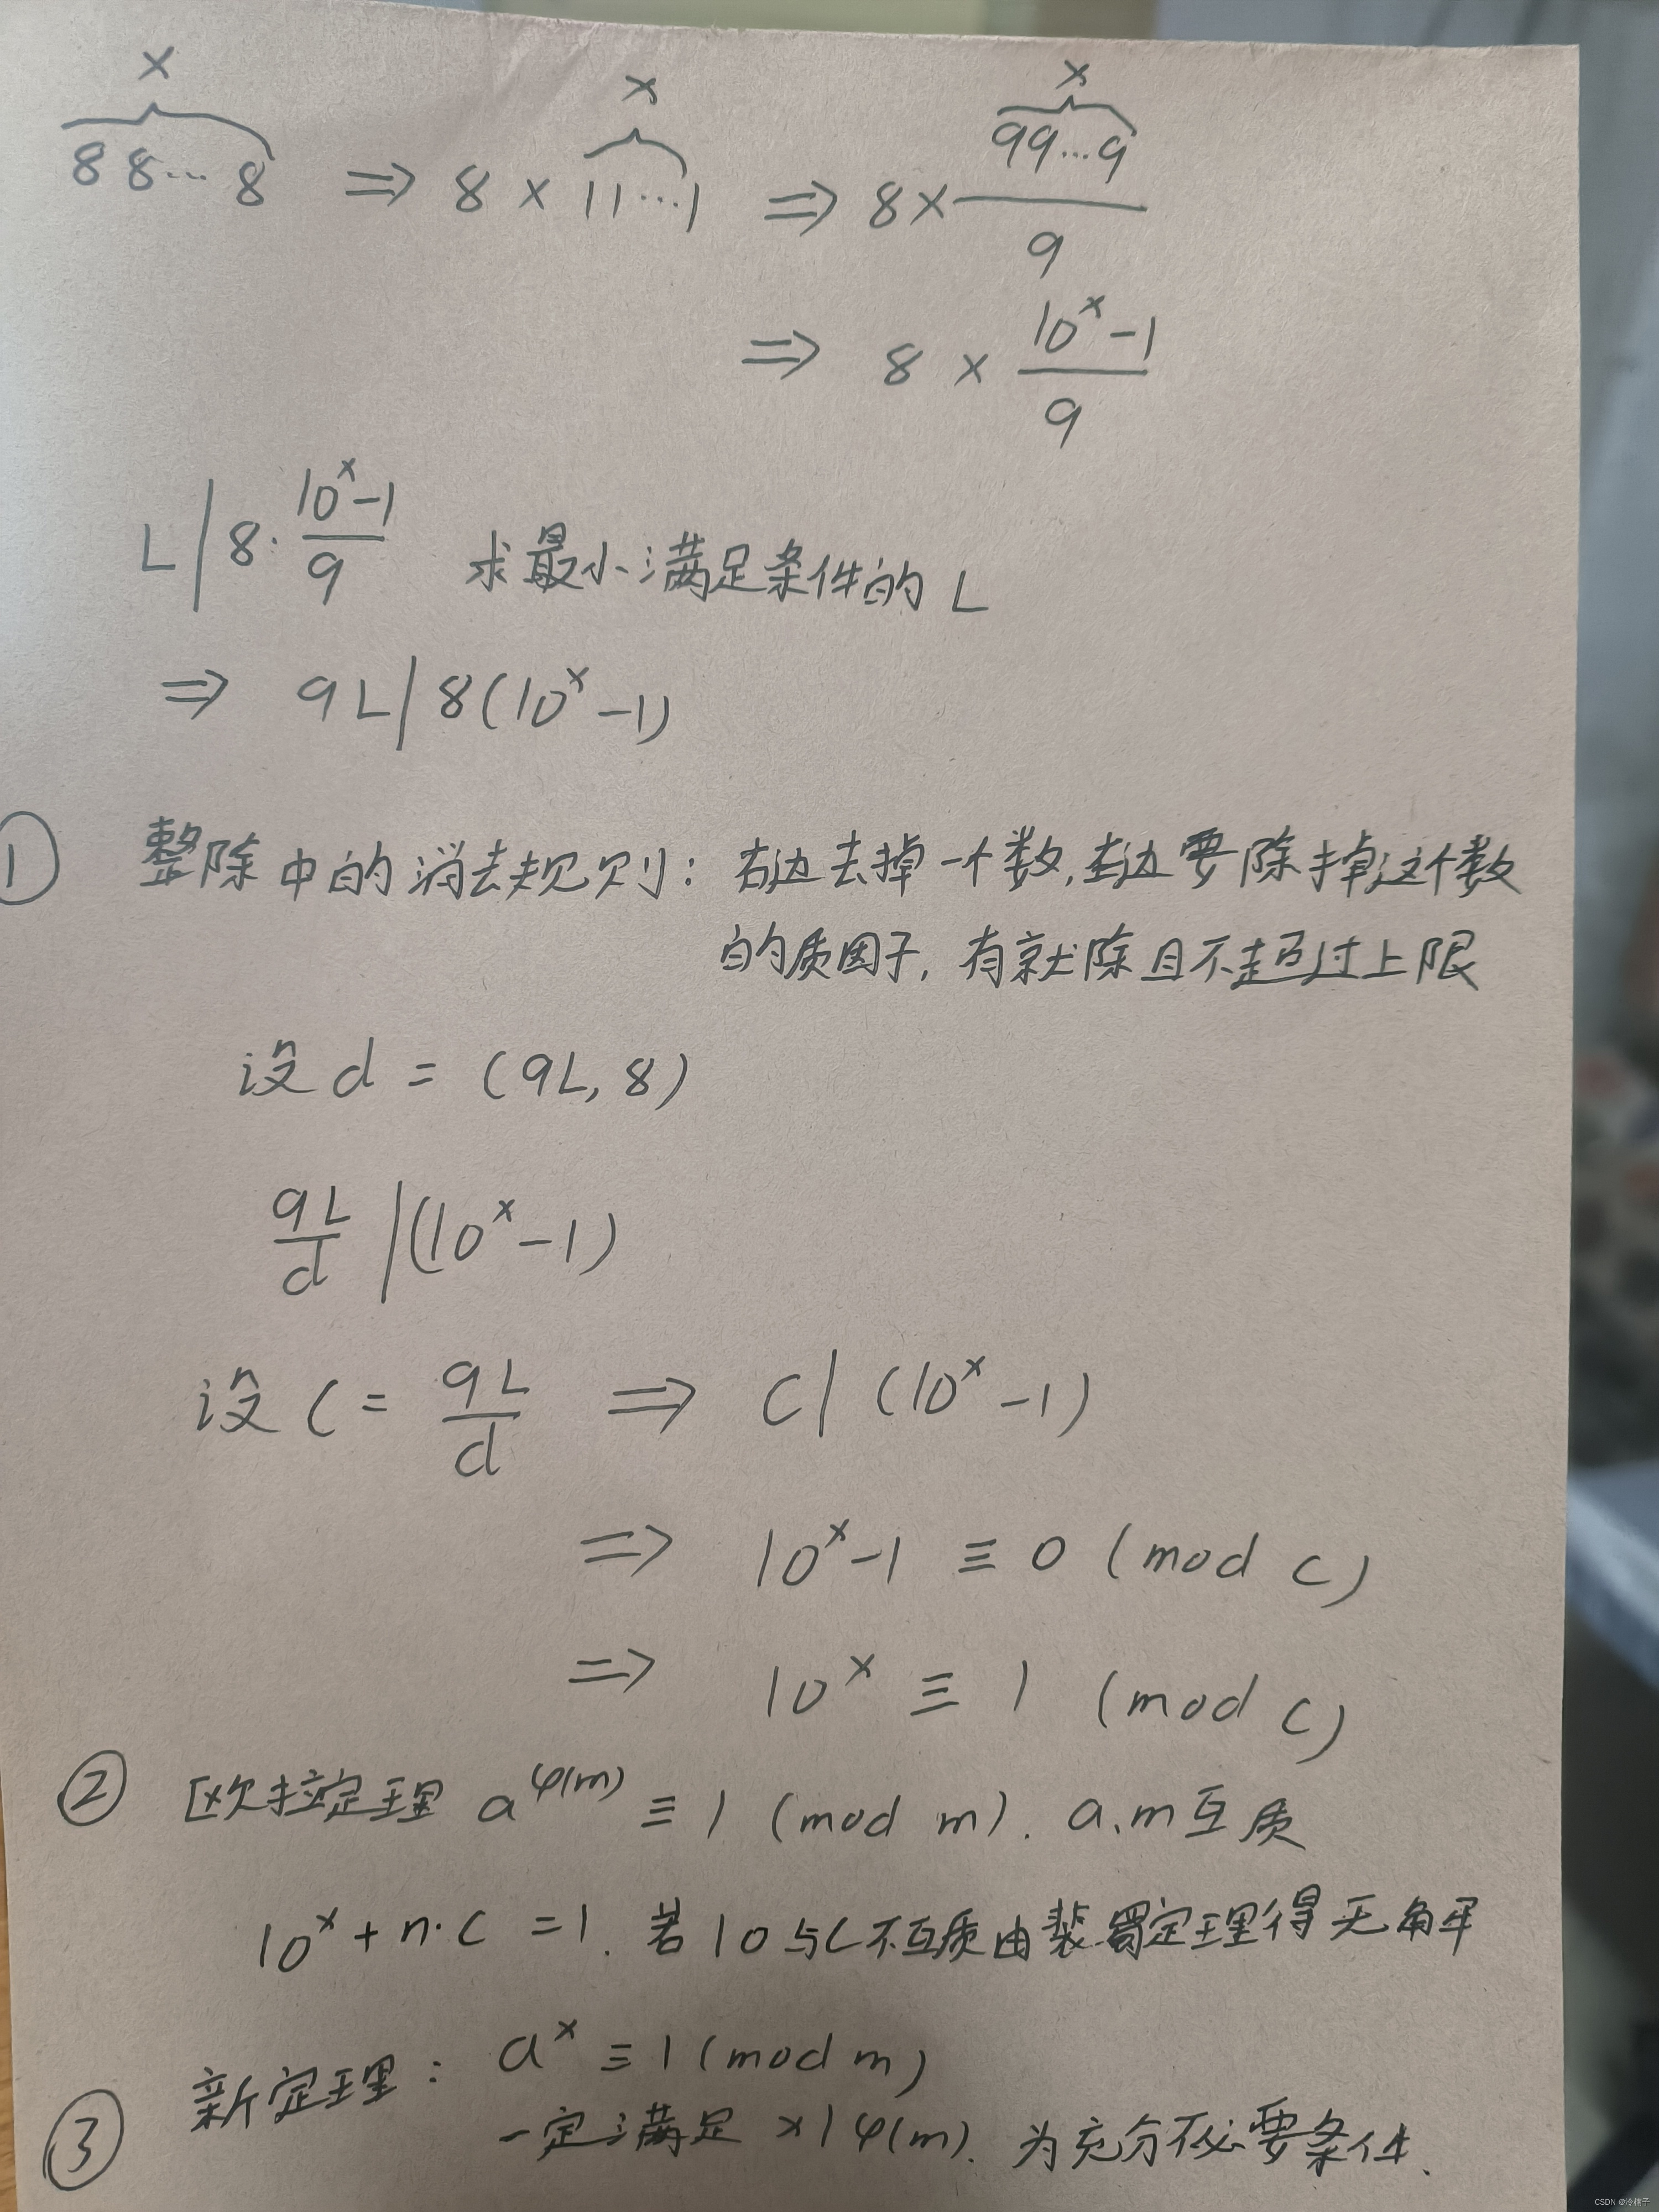 x x x
88…8 ⇒ 8 × 11…1 ⇒ 8 × 99…9 / 9
⇒ 8 × (10^x - 1) / 9
L | 8 · (10^x - 1) / 9 求最小满足条件的 L
⇒ 9L | 8(10^x - 1)
① 整除中的消去规则：右边去掉一个数，左边要除掉这个数
的质因子，有就除且不超过上限
设 d = (9L, 8)
9L / d | (10^x - 1)
设 C = 9L / d ⇒ C | (10^x - 1)
⇒ 10^x - 1 ≡ 0 (mod C)
⇒ 10^x ≡ 1 (mod C)
② 欧拉定理 a^φ(m) ≡ 1 (mod m). a、m互质
10^x + n·C = 1. 若 10 与C不互质由裴蜀定理得无解
③ 新定理： a^x ≡ 1 (mod m)
一定满足 x | φ(m). 为充分不必要条件.
CSDN @泠楠子